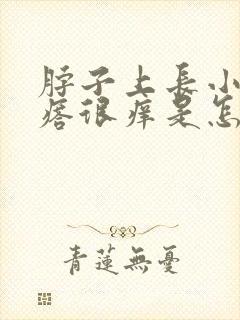 脖子上長小
痞很痒是怎
青蓮無憂